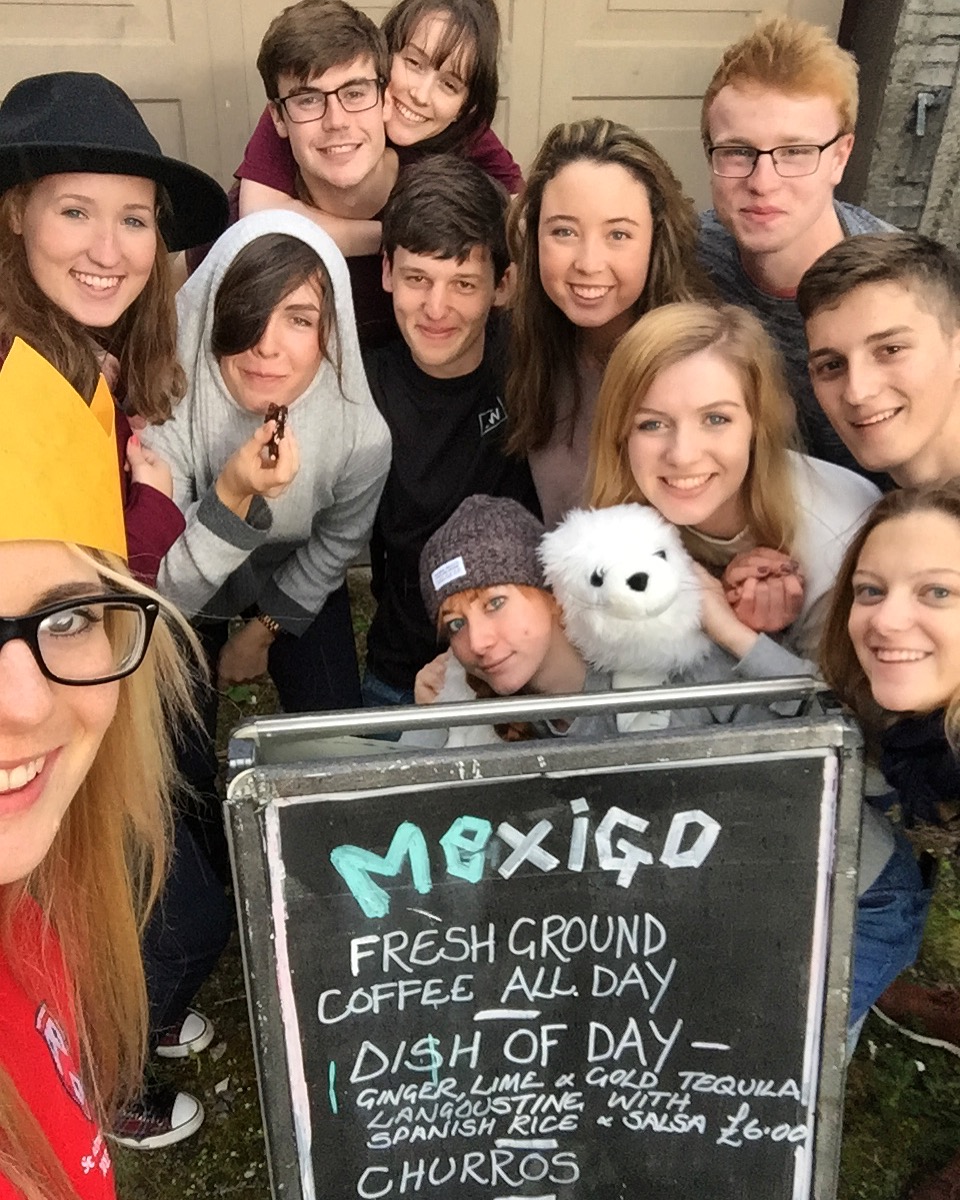 MexiGO
FRESH GROUND
COFFEE ALL DAY
DISH OF DAY –
GINGER, LIME & GOLD TEQUILA
LANGOUSTINE WITH
SPANISH RICE & SALSA £6.00
CHURROS